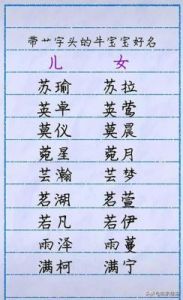 带艹字头的牛宝宝好名
儿 女
苏瑜 苏拉
英卓 英莺
莫仪 莫晨
菀星 菀月
芸瀚 芸梦
茗湖 茗萱
若凡 若伊
雨泽 雨蔓
满柯 满宁